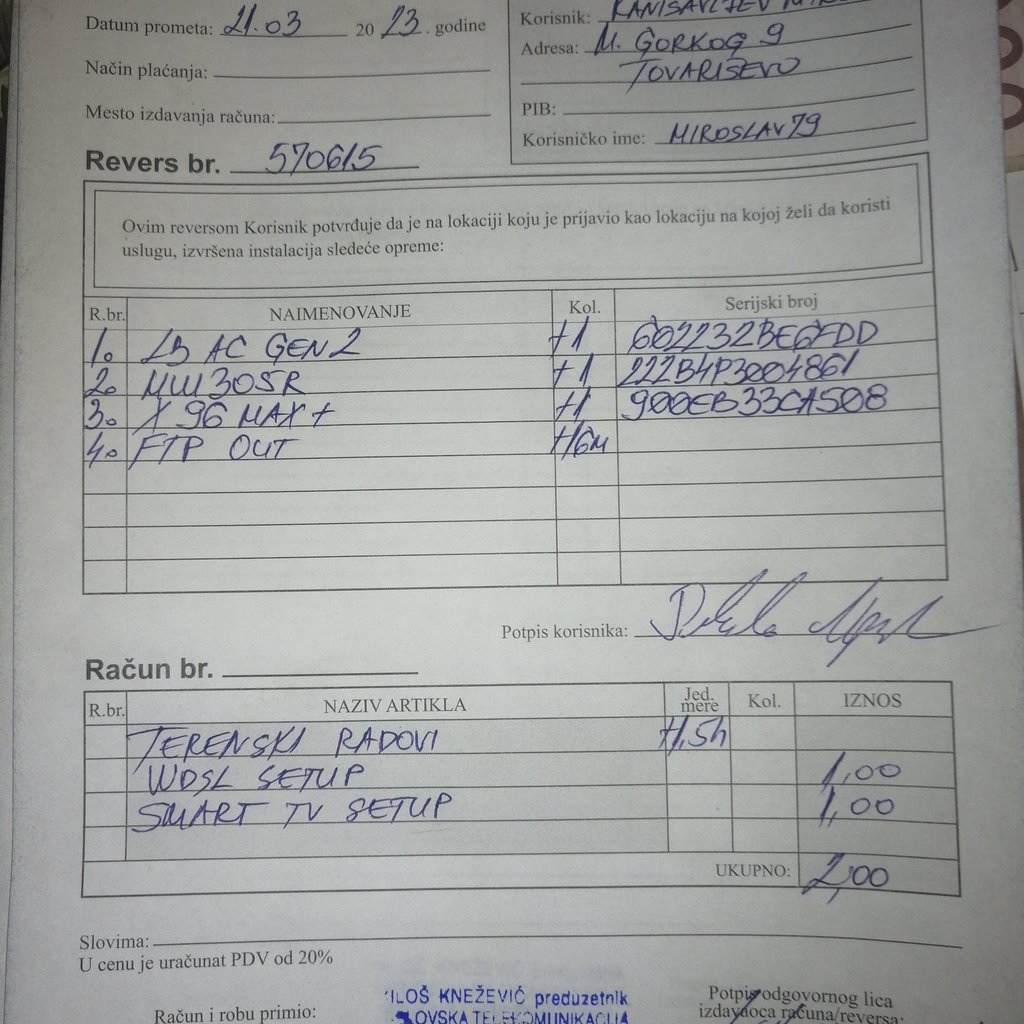 Datum prometa: 21.03 2023. godine
Korisnik:
Adresa: M. GORKOG 9
TOVARIŠEVO
Način plaćanja:
Mesto izdavanja računa:
PIB:
Korisničko ime: MIROSLAV79
Revers br. 570615
Ovim reversom Korisnik potvrđuje da je na lokaciji koju je prijavio kao lokaciju na kojoj želi da koristi
uslugu, izvršena instalacija sledeće opreme:
R.br. NAIMENOVANJE Kol. Serijski broj
1. LB AC GEN2 +1
2. MW305R +1 222B4P3004861
3. X 96 MAX + +1 900EB33CA508
4. FTP OUT +16m
Potpis korisnika:
Račun br.
R.br. NAZIV ARTIKLA Jed. mere Kol. IZNOS
TERENSKI RADOVI +1,5h
WDSL SETUP 1,00
SMART TV SETUP 1,00
UKUPNO: 2,00
Slovima:
U cenu je uračunat PDV od 20%
Račun i robu primio:
KNEŽEVIĆ preduzetnik
TELEKOMUNIKACIJA
Potpis odgovornog lica
izdavaoca računa/reversa: